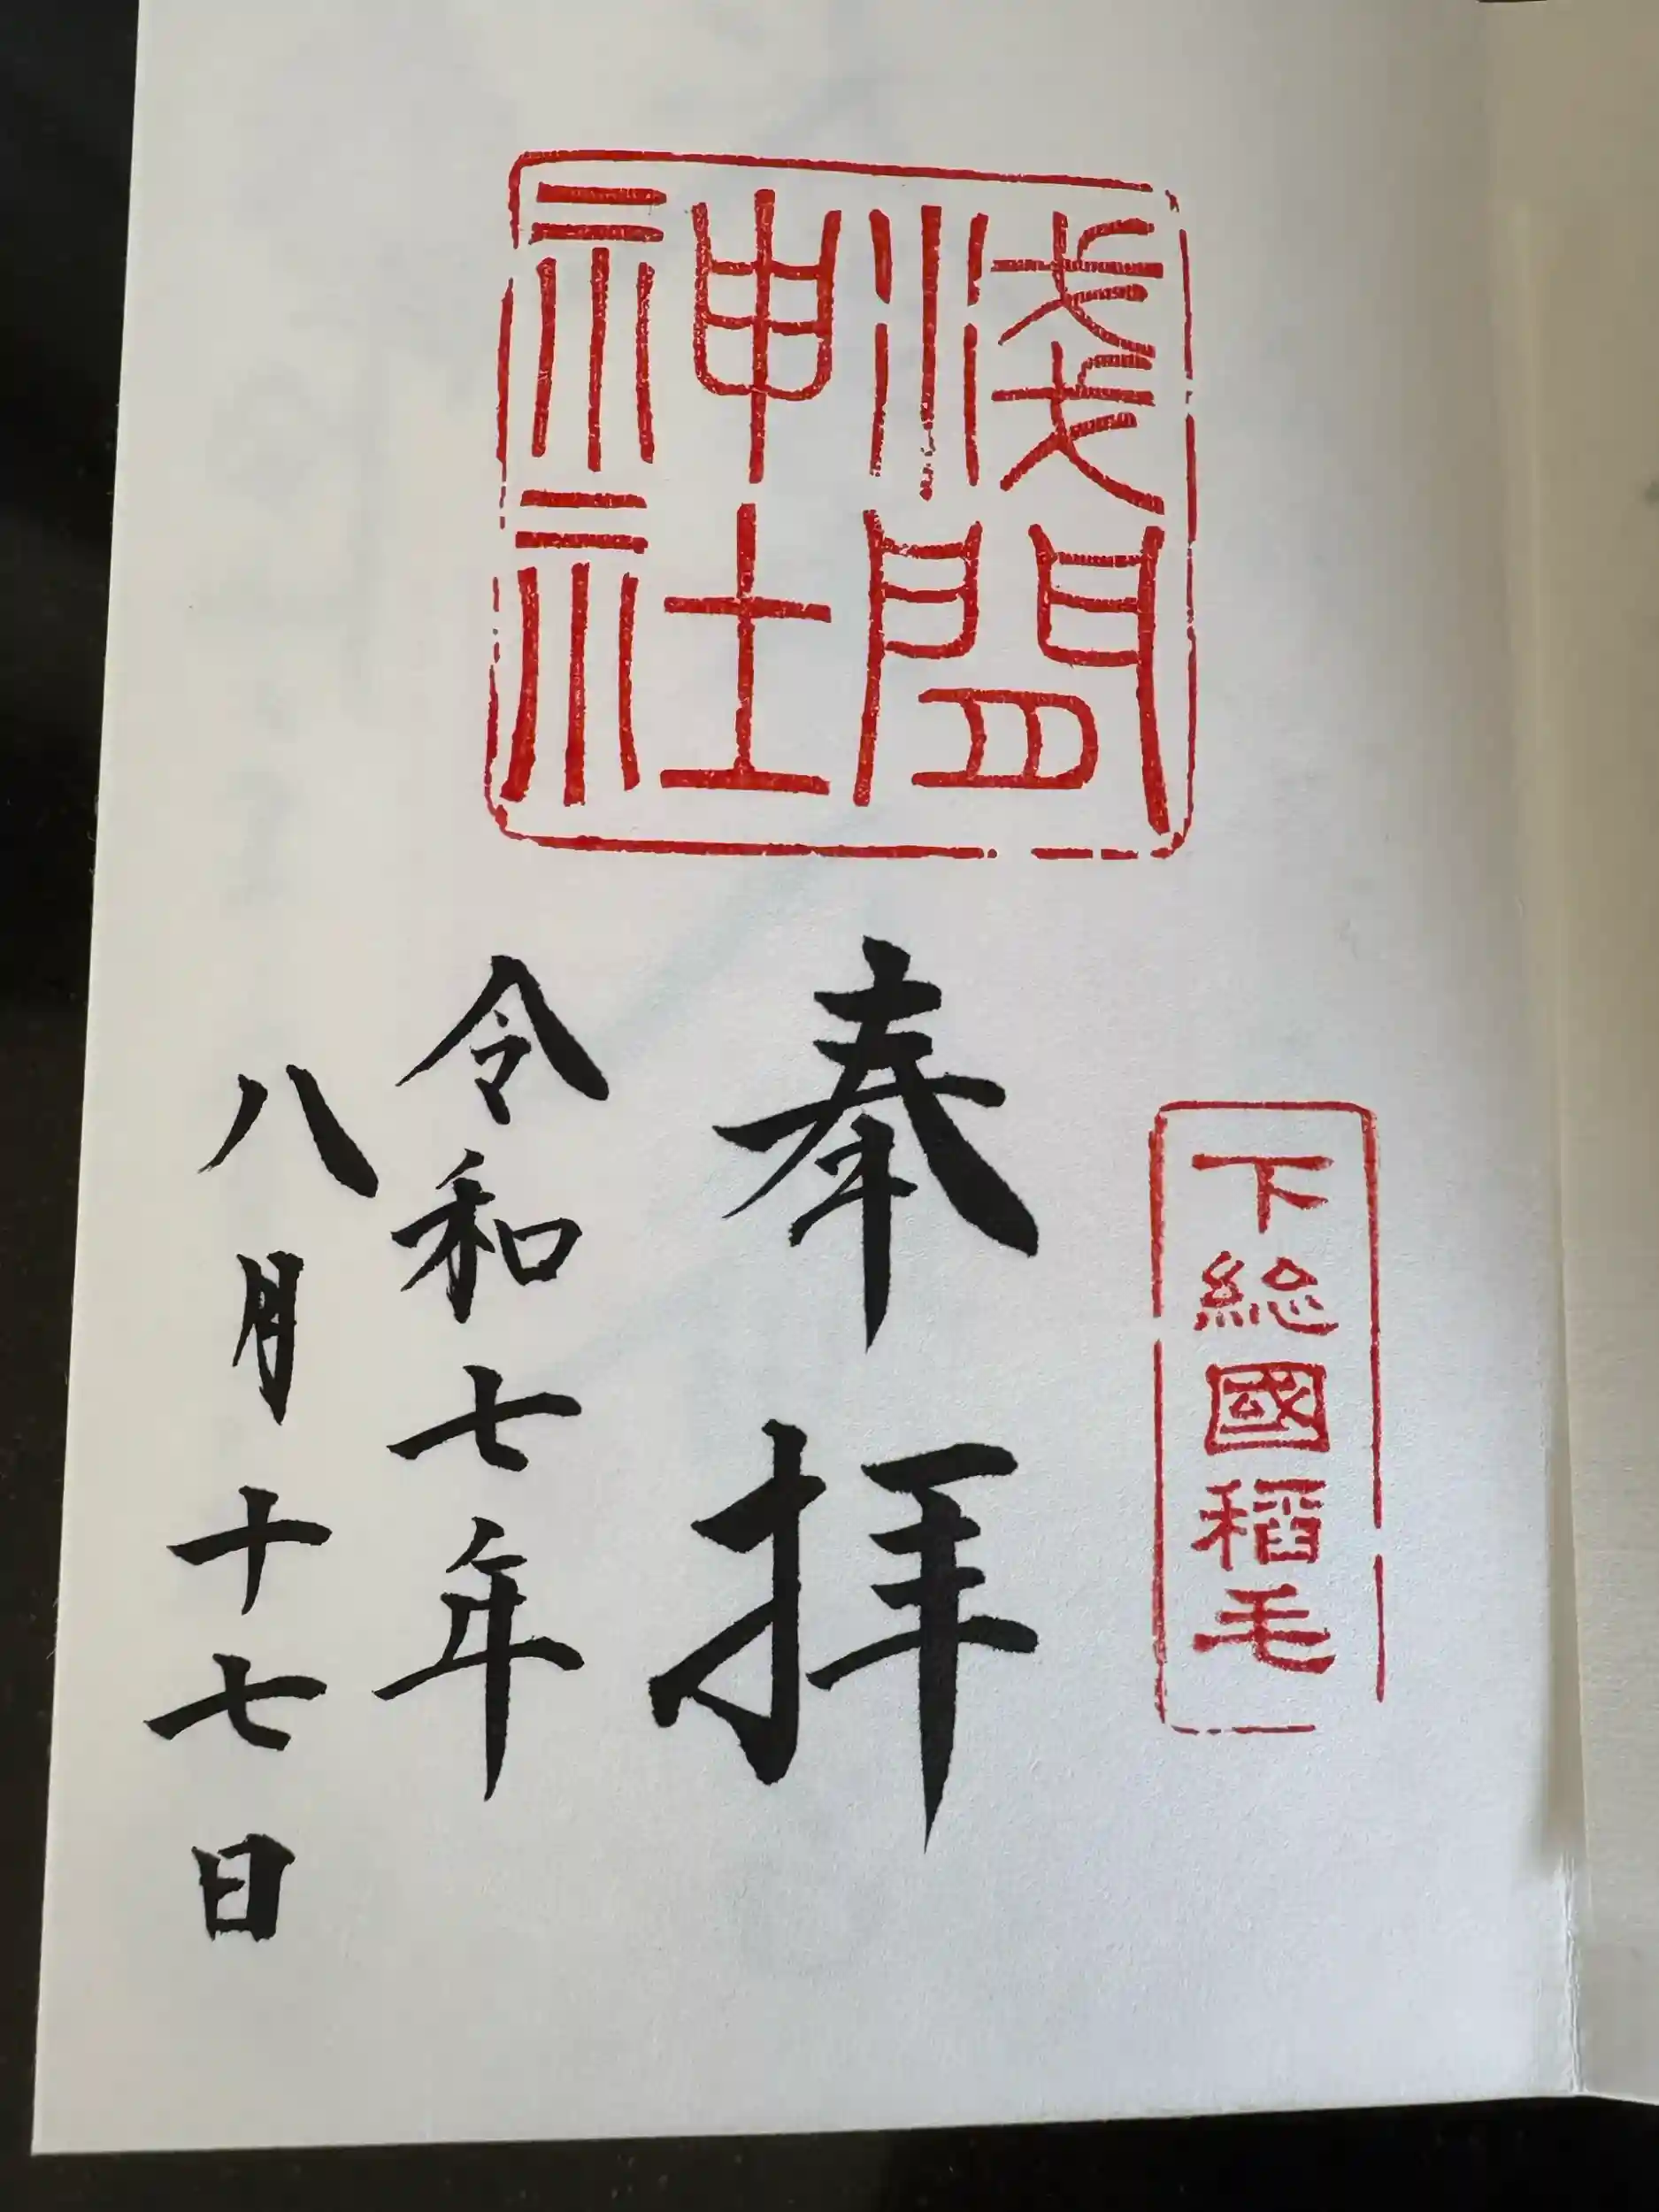 下総國稲毛
淺間
神社
奉拝
令和七年
八月十七日